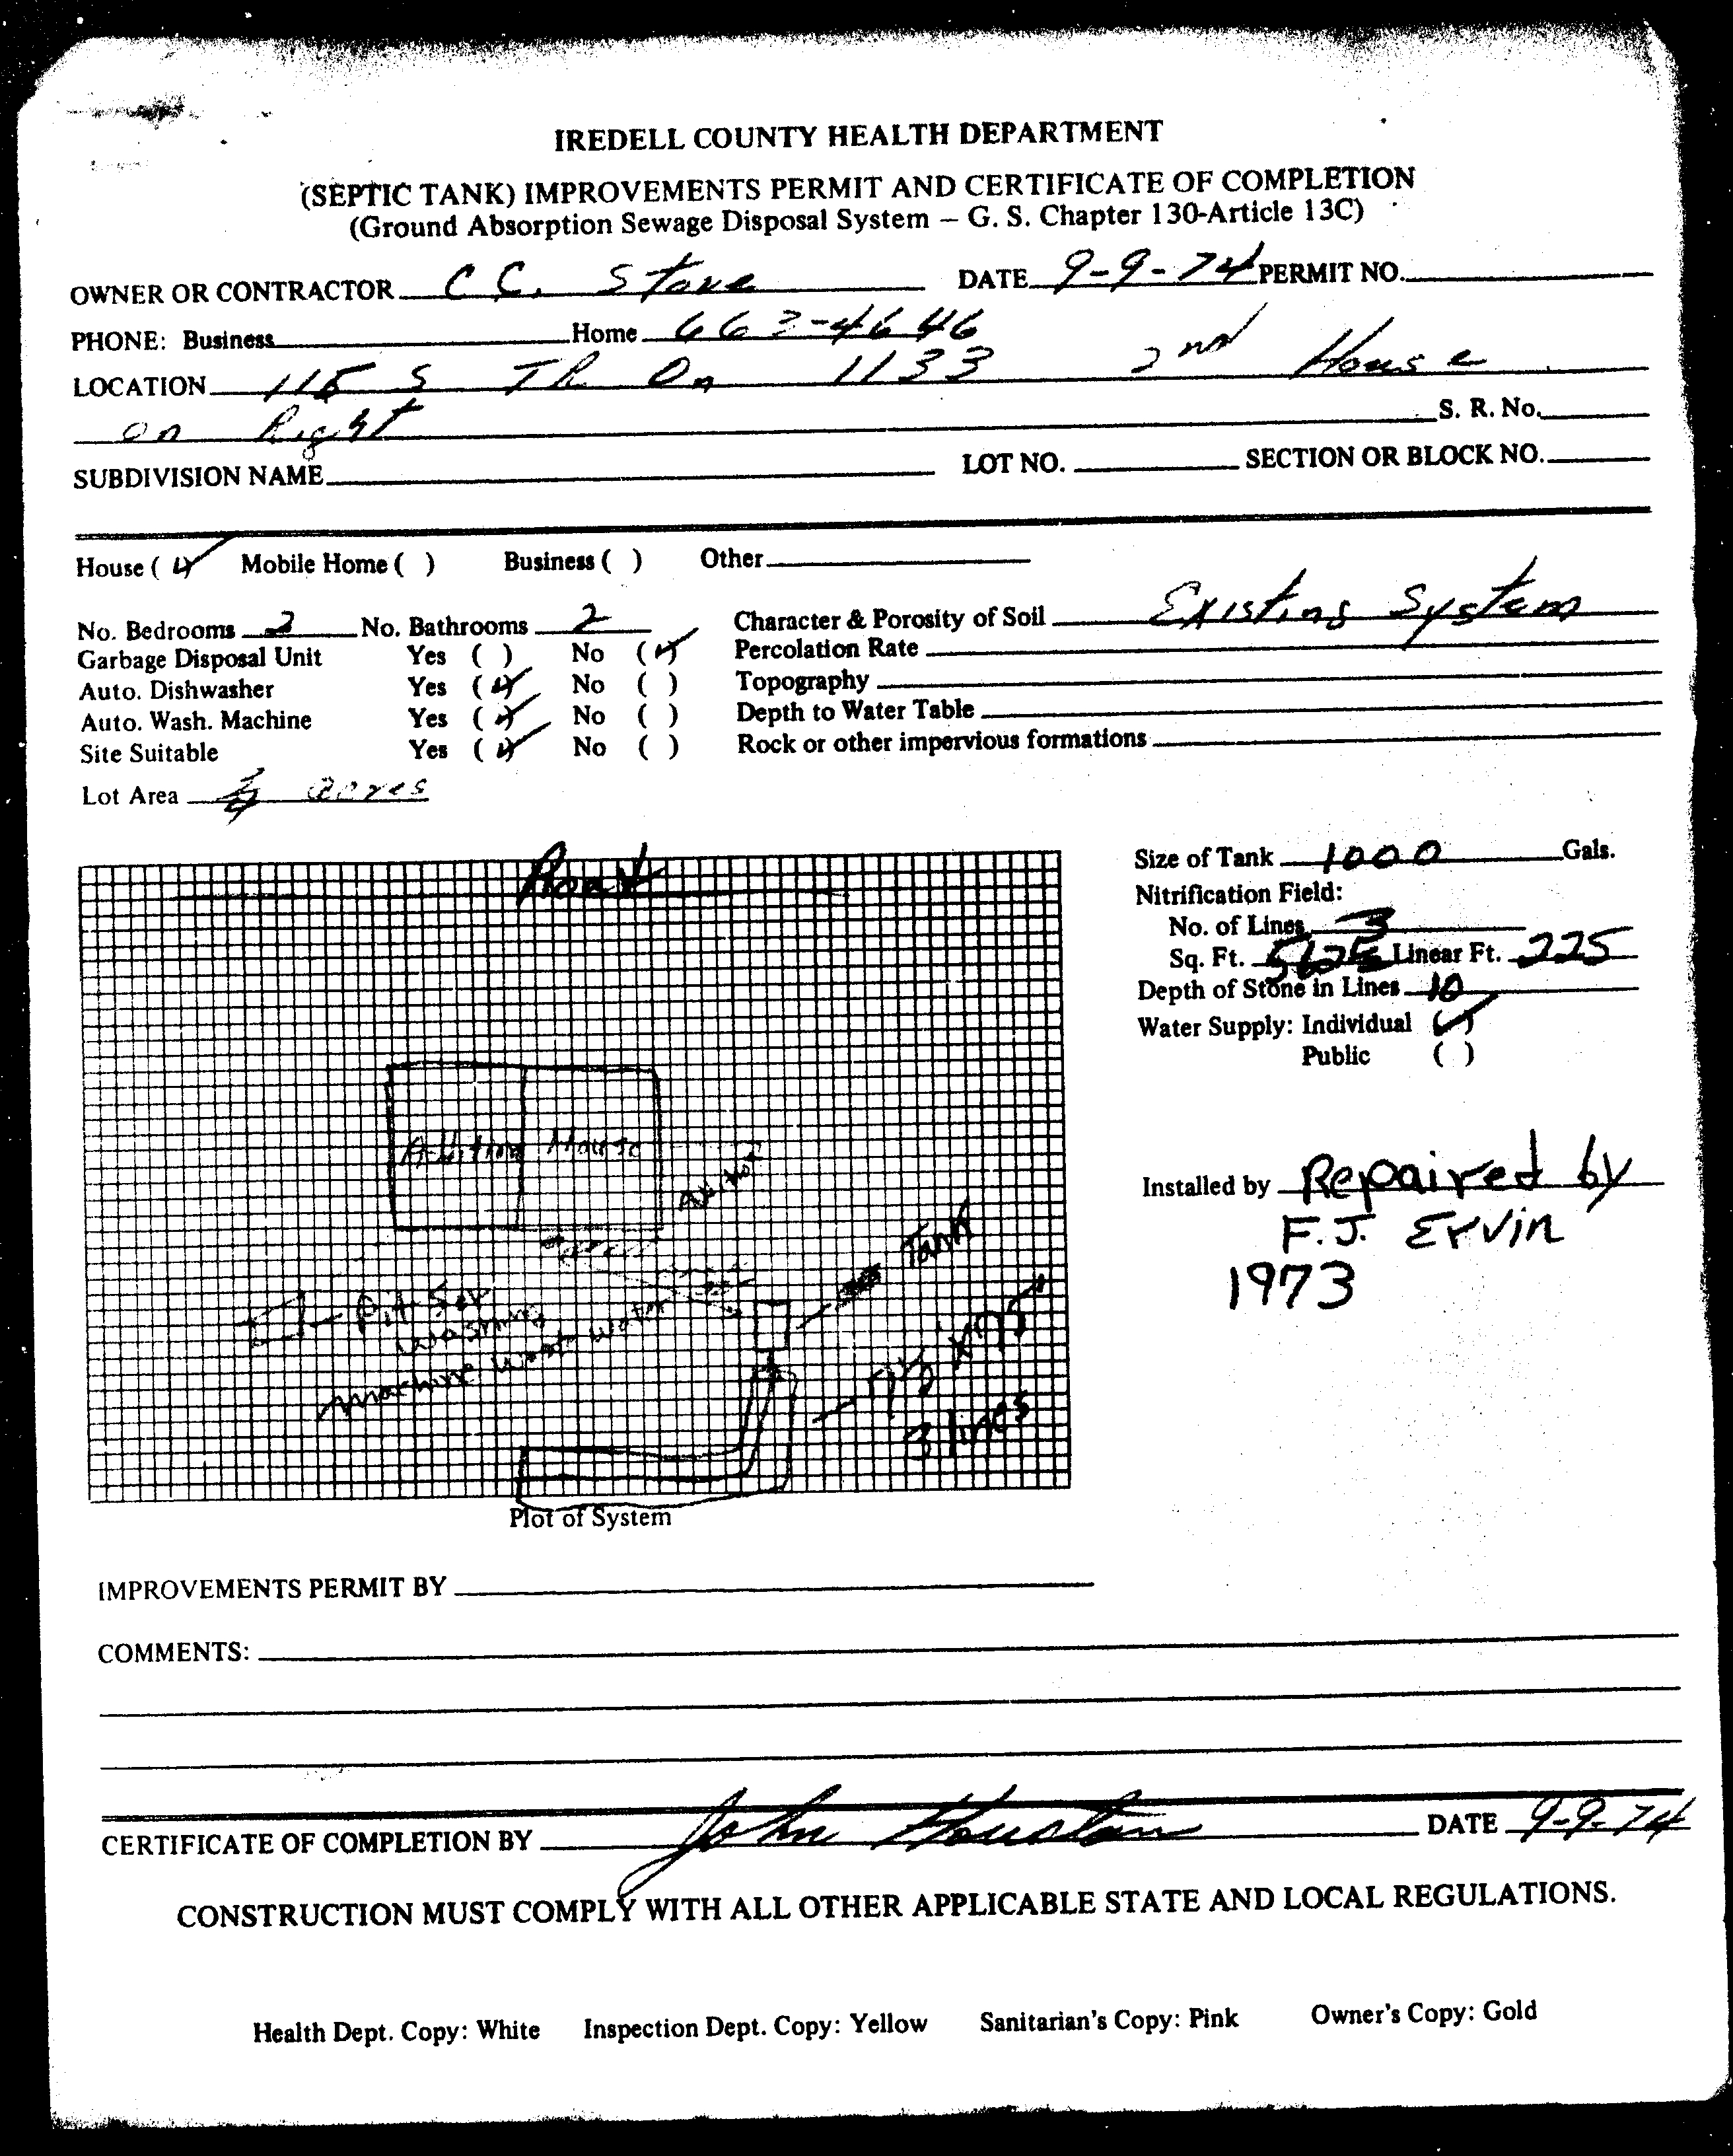 IREDELL COUNTY HEALTH DEPARTMENT
(SEPTIC TANK) IMPROVEMENTS PERMIT AND CERTIFICATE OF COMPLETION
(Ground Absorption Sewage Disposal System – G. S. Chapter 130-Article 13C)
OWNER OR CONTRACTOR C C. Stone DATE 9-9-74 PERMIT NO.
PHONE: Business Home 663-4646
LOCATION 115 S TR On 1133 2nd House
on Right S. R. No.
SUBDIVISION NAME LOT NO. SECTION OR BLOCK NO.
House ( ✓ ) Mobile Home ( ) Business ( ) Other
No. Bedrooms No. Bathrooms 2 Character & Porosity of Soil Existing System
Garbage Disposal Unit Yes ( ) No ( ✓ ) Percolation Rate
Auto. Dishwasher Yes ( ✓ ) No ( ) Topography
Auto. Wash. Machine Yes ( ✓ ) No ( ) Depth to Water Table
Site Suitable Yes ( ✓ ) No ( ) Rock or other impervious formations
Lot Area acres
Size of Tank 1000 Gals.
Nitrification Field:
No. of Lines 3
Sq. Ft. Linear Ft. 225
Depth of Stone in Lines 10
Water Supply: Individual ( ✓ )
Public ( )
Installed by Repaired by
F.J. Ervin
1973
House
Tank
Pit for
washing
machine wast water
3 lines
Plot of System
IMPROVEMENTS PERMIT BY
COMMENTS:
CERTIFICATE OF COMPLETION BY John Houston DATE 9-9-74
CONSTRUCTION MUST COMPLY WITH ALL OTHER APPLICABLE STATE AND LOCAL REGULATIONS.
Health Dept. Copy: White Inspection Dept. Copy: Yellow Sanitarian's Copy: Pink Owner's Copy: Gold